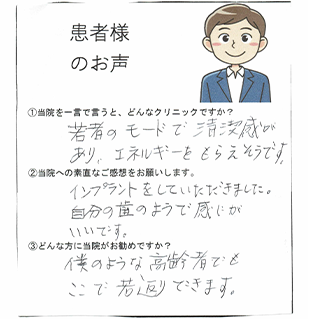 患者様
のお声
①当院を一言で言うと、どんなクリニックですか？
若者のモードで清潔感が
あり、エネルギーをもらえそうです。
②当院への素直なご感想をお願いします。
インプラントをしていただきました。
自分の歯のようで感じが
いいです。
③どんな方に当院がお勧めですか？
僕のような高齢者でも
ここで若返りできます。